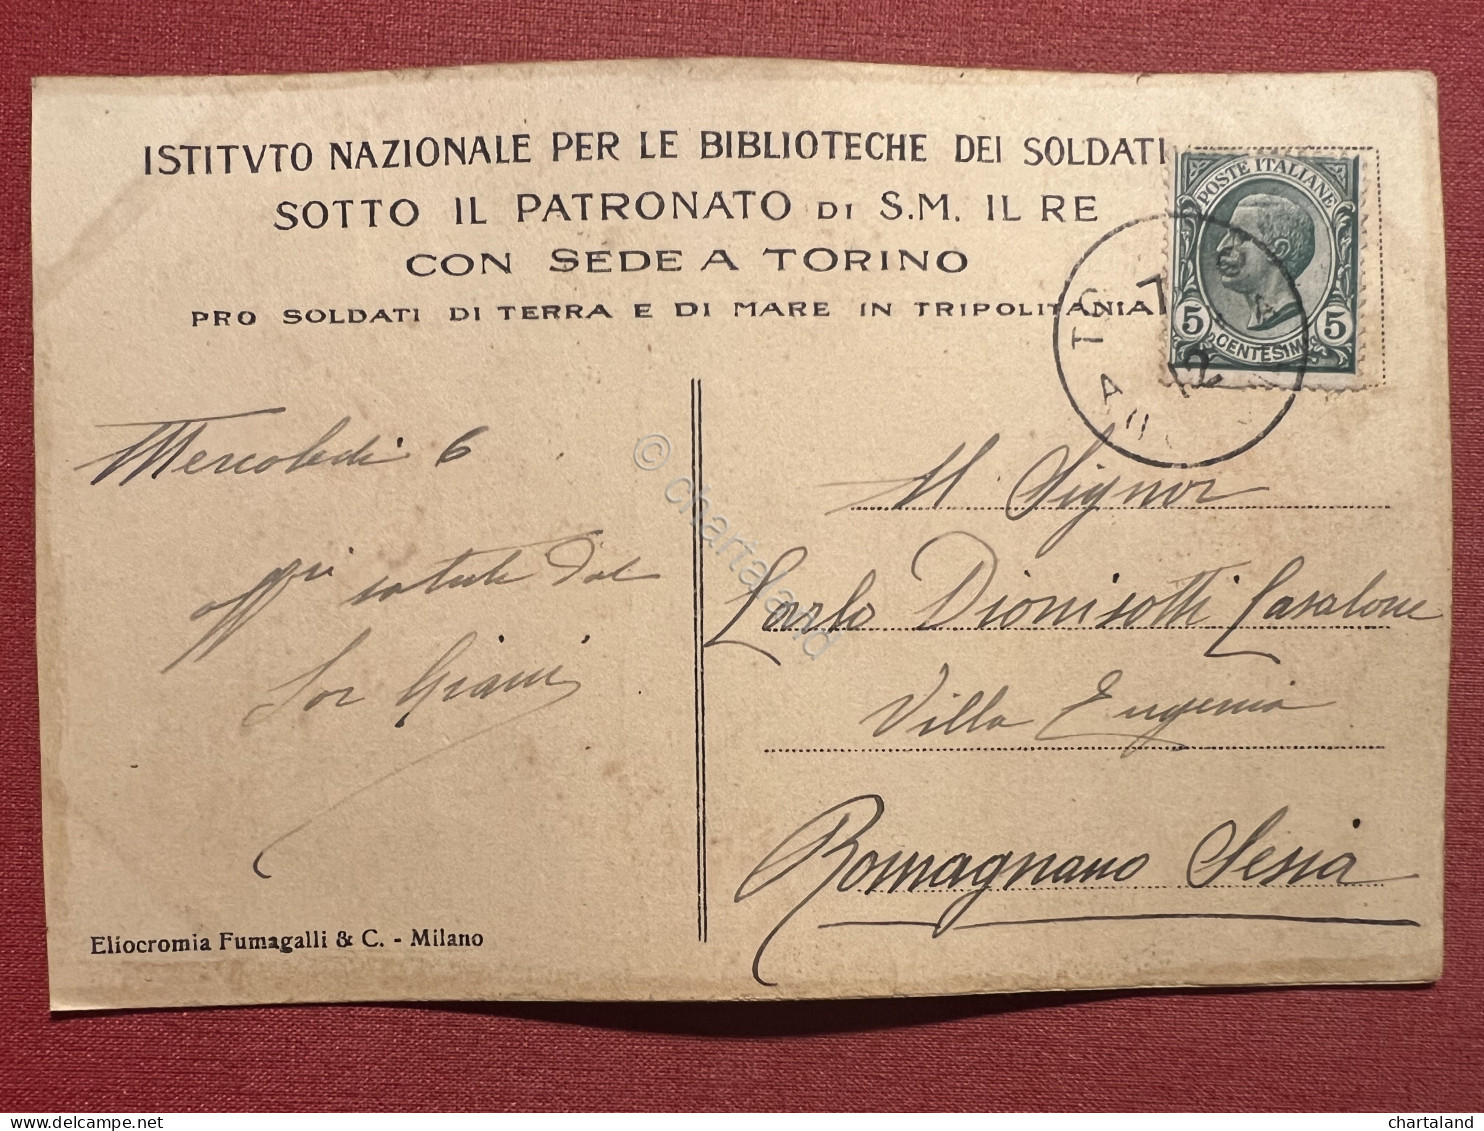 ISTITVTO NAZIONALE PER LE BIBLIOTECHE DEI SOLDATI
SOTTO IL PATRONATO DI S.M. IL RE
CON SEDE A TORINO
PRO SOLDATI DI TERRA E DI MARE IN TRIPOLITANIA
POSTE ITALIANE
5 5
CENTESIMI
12
Mercoledì 6
Eliocromia Fumagalli & C. - Milano
Al Signor
Carlo Dionisotti Casalone
Villa Eugenia
Romagnano Sesia
© chartaland
chartaland